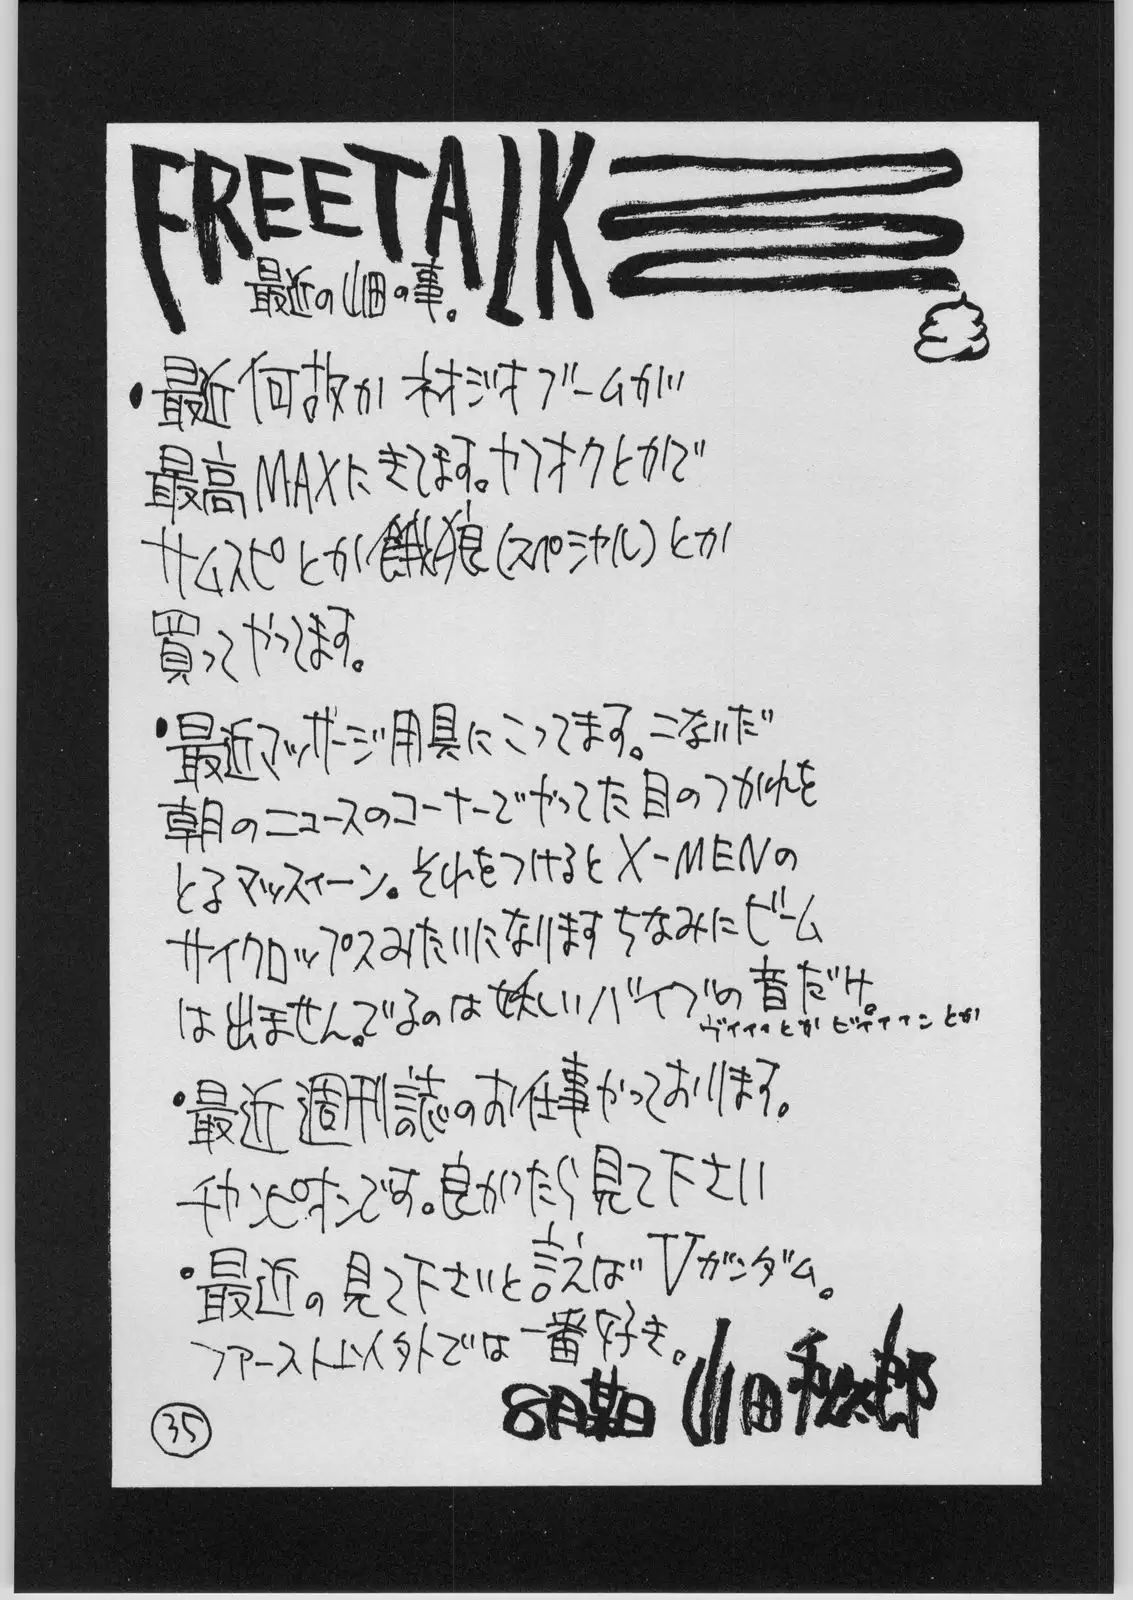 FREETALK
最近の山田の事。
・最近何故かネオジオブームが
最高MAXにきてます。ヤフオクとかで
サムスピとか餓狼(スペシャル)とか
買ってやってます。
・最近マッサージ用具にこってます。こないだ
朝のニュースのコーナーでやってた目のつかれを
とるマッスィーン。それをつけるとX-MENの
サイクロップスみたいになりますちなみにビーム
は出ません。でるのは妖しいバイブの音だけ。
ヴィィィとかピティィンとか
・最近週刊誌のお仕事やっております。
チャンピオンです。良かったら見て下さい
・最近の見て下さいと言えばVガンダム。
ファースト以外では一番好き。
8月某日 山田秀太郎
35